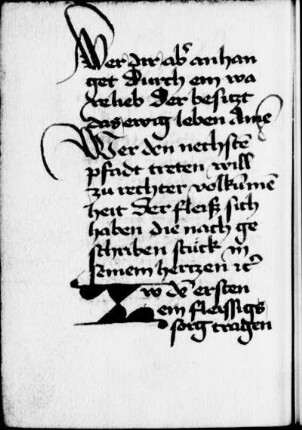 Wer dir ab' anhan
get durch ein wa
re lieb Der besitzt
das ewig leben Amē
Wer den nechstē
pfadt treten will
zu rechter volkūmē
heit Der fleiß sich
haben die nach ge
schriben stuck in
seinem hertzen
Zw dē ersten
ein fleissigs
sorg tragen